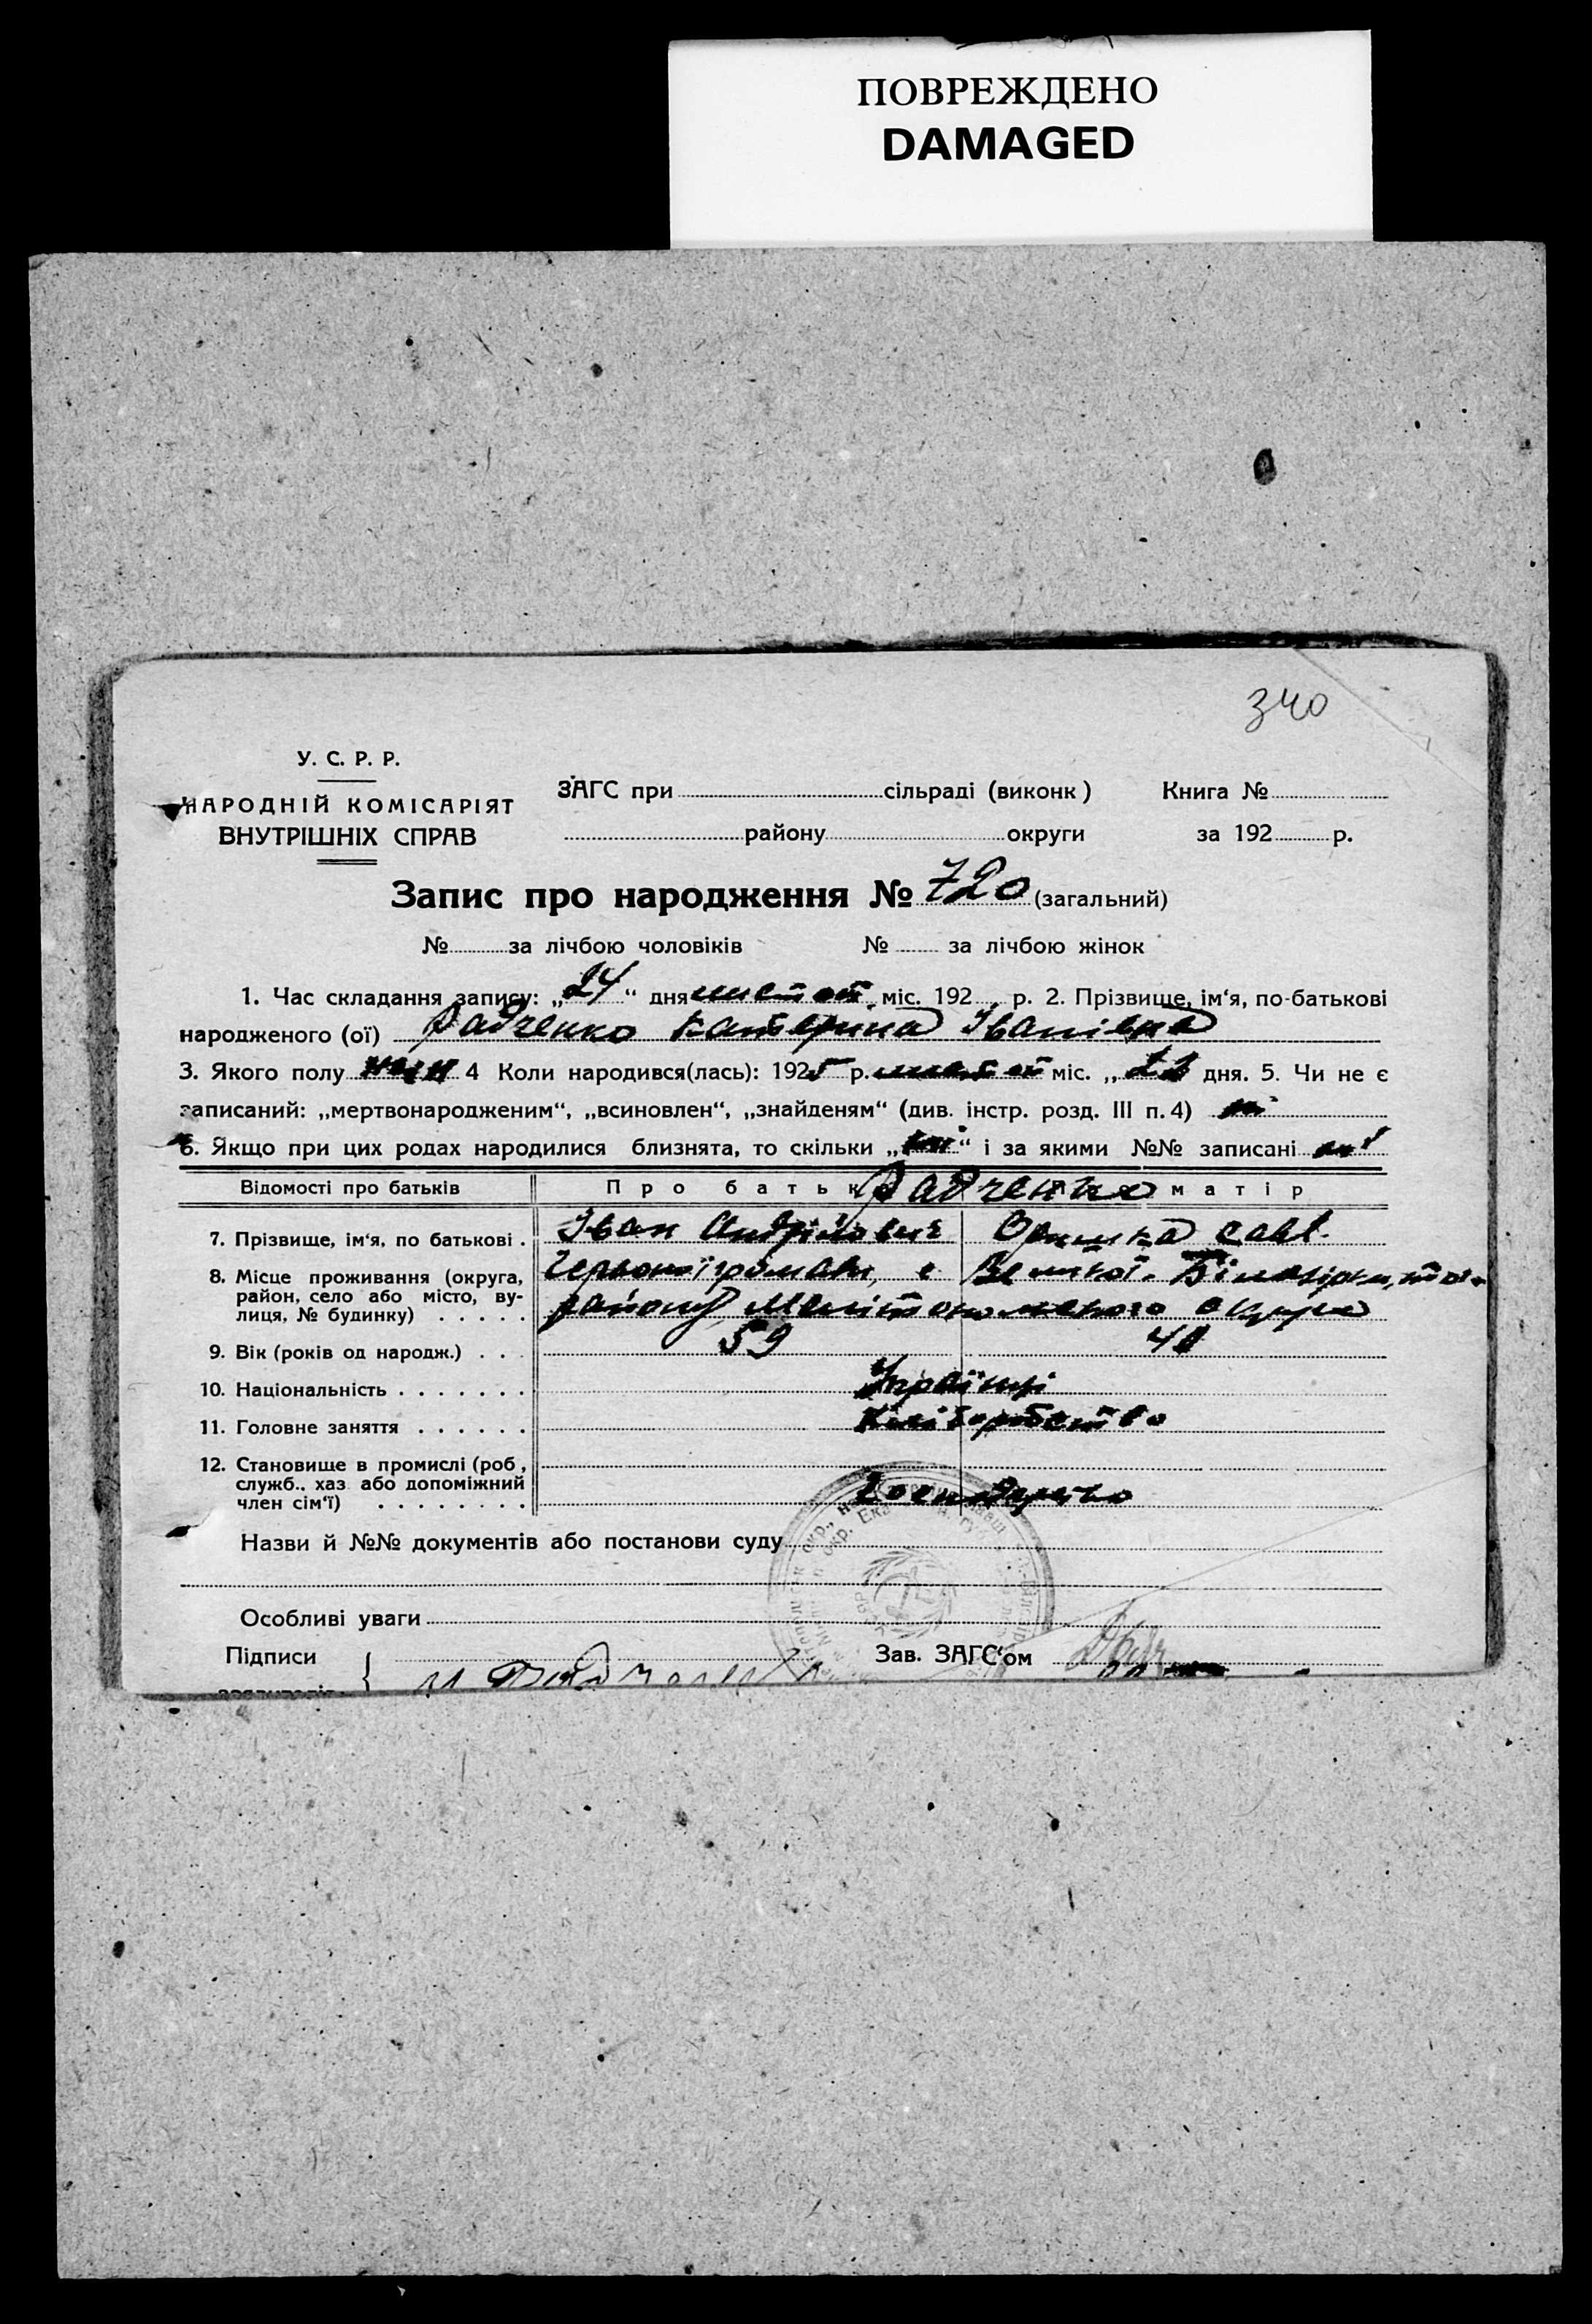 ПОВРЕЖДЕНО
DAMAGED
340
У. С. Р. Р.
НАРОДНІЙ КОМІСАРІЯТ
ВНУТРІШНІХ СПРАВ
ЗАГС при сільраді (виконк)
району округи
Книга №
за 192 р.
Запис про народження № 720 (загальний)
№ за лічбою чоловіків № за лічбою жінок
1. Час складання запису: „24“ дня листоп міс. 192 р. 2. Прізвище, ім‘я, по-батькові
народженого (ої) Радченко Катеріна Іванівна
3. Якого полу 4 Коли народився(лась): 1925 р. міс. „ дня. 5. Чи не є
записаний: „мертвонародженим“, „всиновлен“, „знайденям“ (див. інстр. розд. III п. 4) ні
6. Якщо при цих родах народилися близнята, то скільки „ні“ і за якими №№ записані ні
Відомості про батьків Про батька Радченко матір
7. Прізвище, ім‘я, по батькові . Іван Андрійович Оришка Савл.
8. Місце проживання (округа, район, село або місто, вулиця, № будинку) . . . . . Червоної громади, с Великої Білозірки,
району Мелітопольського округа
9. Вік (років од народж.) . . . 59 41
10. Національність . . . . . . . Українці
11. Головне заняття . . . . . . Хліборобство
12. Становище в промислі (роб, служб.. хаз або допоміжний член сім‘ї) . . . . . . . .
Назви й №№ документів або постанови суду
Особливі уваги
Підписи
Зав. ЗАГС‘ом